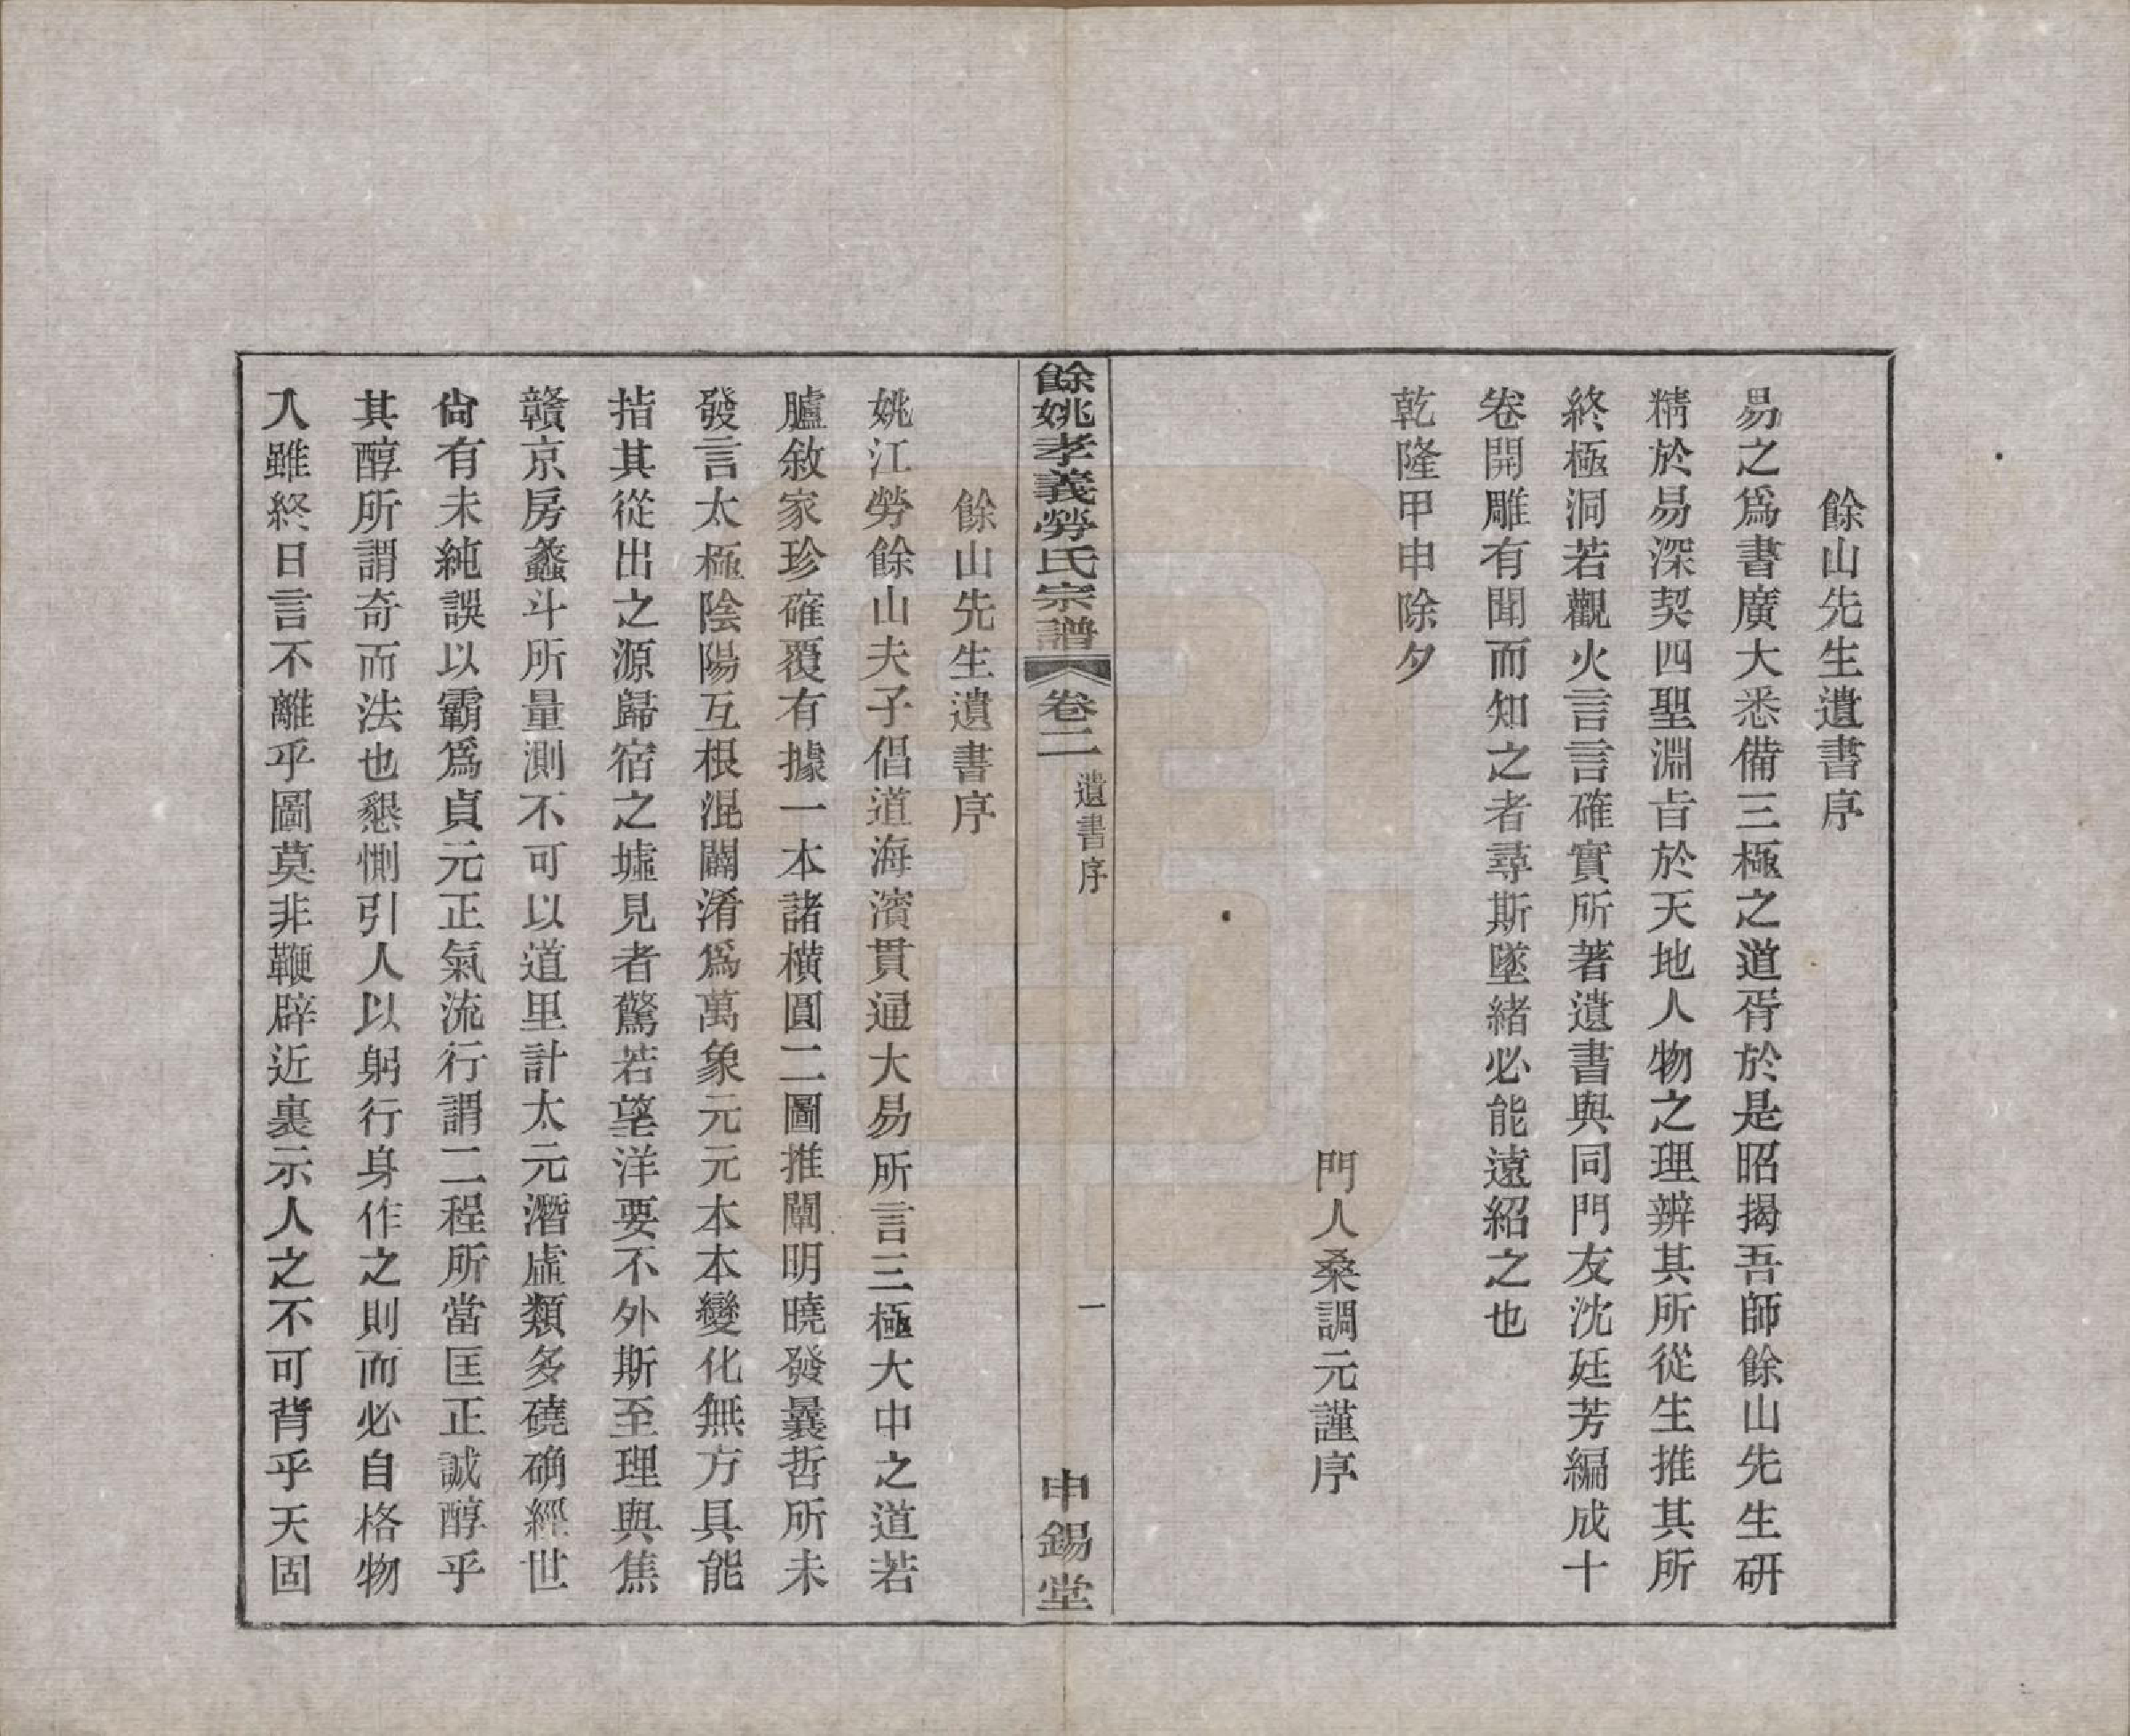 餘山先生遺書序
易之爲書廣大悉備三極之道胥於是昭揭吾師餘山先生研
精於易深契四聖淵旨於天地人物之理辨其所從生推其所
終極洞若觀火言言確實所著遺書與同門友沈廷芳編成十
卷開雕有聞而知之者尋斯墜緒必能遠紹之也
乾隆甲申除夕
門人桑調元謹序
餘姚孝義勞氏宗譜
卷二
遺書序
一
申錫堂
餘山先生遺書序
姚江勞餘山夫子倡道海濱貫通大易所言三極大中之道若
臚敘家珍確覆有據一本諸橫圓二圖推闡明曉發曩哲所未
發言太極陰陽互根混闢淆爲萬象元元本本變化無方具能
指其從出之源歸宿之墟見者驚若望洋要不外斯至理與焦
贛京房蠡斗所量測不可以道里計太元潛虛類多磽确經世
尙有未純誤以霸爲貞元正氣流行謂二程所當匡正誠醇乎
其醇所謂奇而法也懇惻引人以躬行身作之則而必自格物
入雖終日言不離乎圖莫非鞭辟近裏示人之不可背乎天固